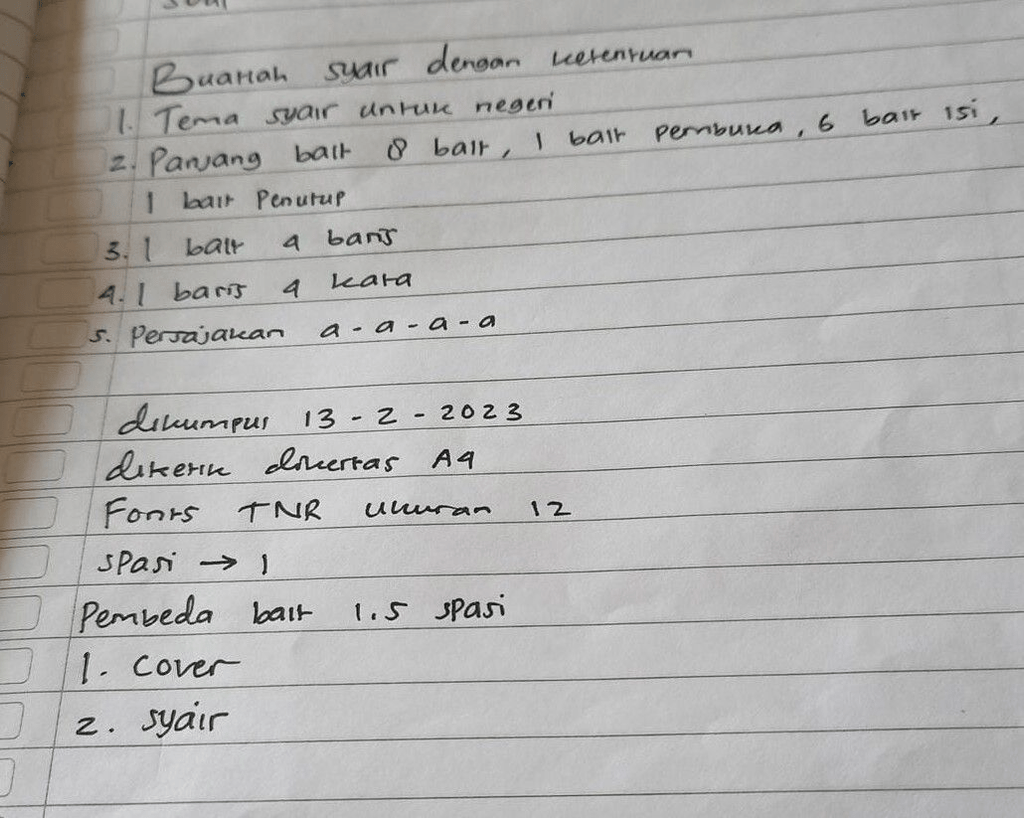 Buatlah syair dengan ketentuan
1. Tema syair untuk negeri
2. Panjang bait 8 bait, 1 bait pembuka, 6 bait isi,
1 bait Penutup
3. 1 bait 4 baris
4. 1 baris 4 kata
5. Persajakan a-a-a-a
dikumpul 13-2-2023
diketik dikertas A4
Fonts TNR ukuran 12
spasi → 1
Pembeda bait 1.5 spasi
1. cover
2. syair